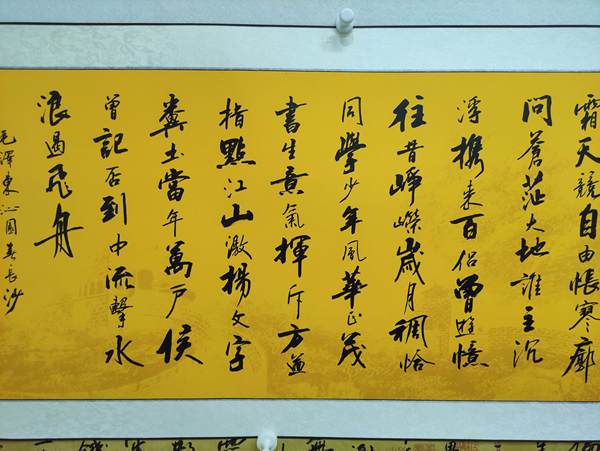 霜天競自由悵寥廓
問蒼茫大地誰主沉
浮携来百侣曾遊憶
往昔崢嶸歲月稠恰
同學少年風華正茂
書生意氣揮斥方遒
指點江山激揚文字
糞土當年萬户侯
曾記否到中流擊水
浪遏飛舟
毛澤東沁園春長沙